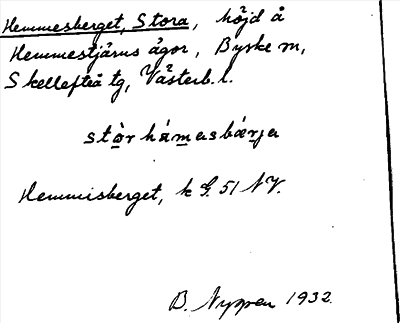 Hemmesberget, Stora, höjd å
Hemmestjärns ägor, Byske sn,
Skellefteå tg, Västerb. l.
stò̱r hámasbárja
Hemmisberget, k G. 51 NV.
B. Nyppen 1932.